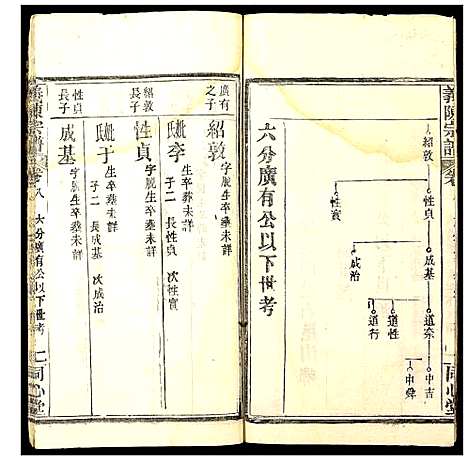 義陳宗譜
紹敦
性貞
性實
成基
成治
道奈
道性
道行
中吉
中舜
同心堂
六分廣有公以下世考
廣有之子
紹敦 字脫生卒葬未詳
妣李 生卒葬未詳
子二 長性貞 次性實
紹敦長子
性貞 字脫生卒葬未詳
妣于 生卒葬未詳
子二 長成基 次成治
性貞長子
成基 字脫生卒葬未詳
義陳宗譜 卷八 六分廣有公以下世考
同心堂